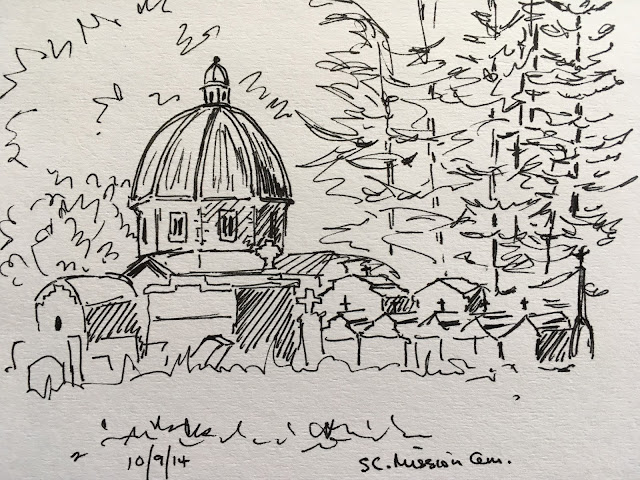 10/9/14
SC. Mission Cem.